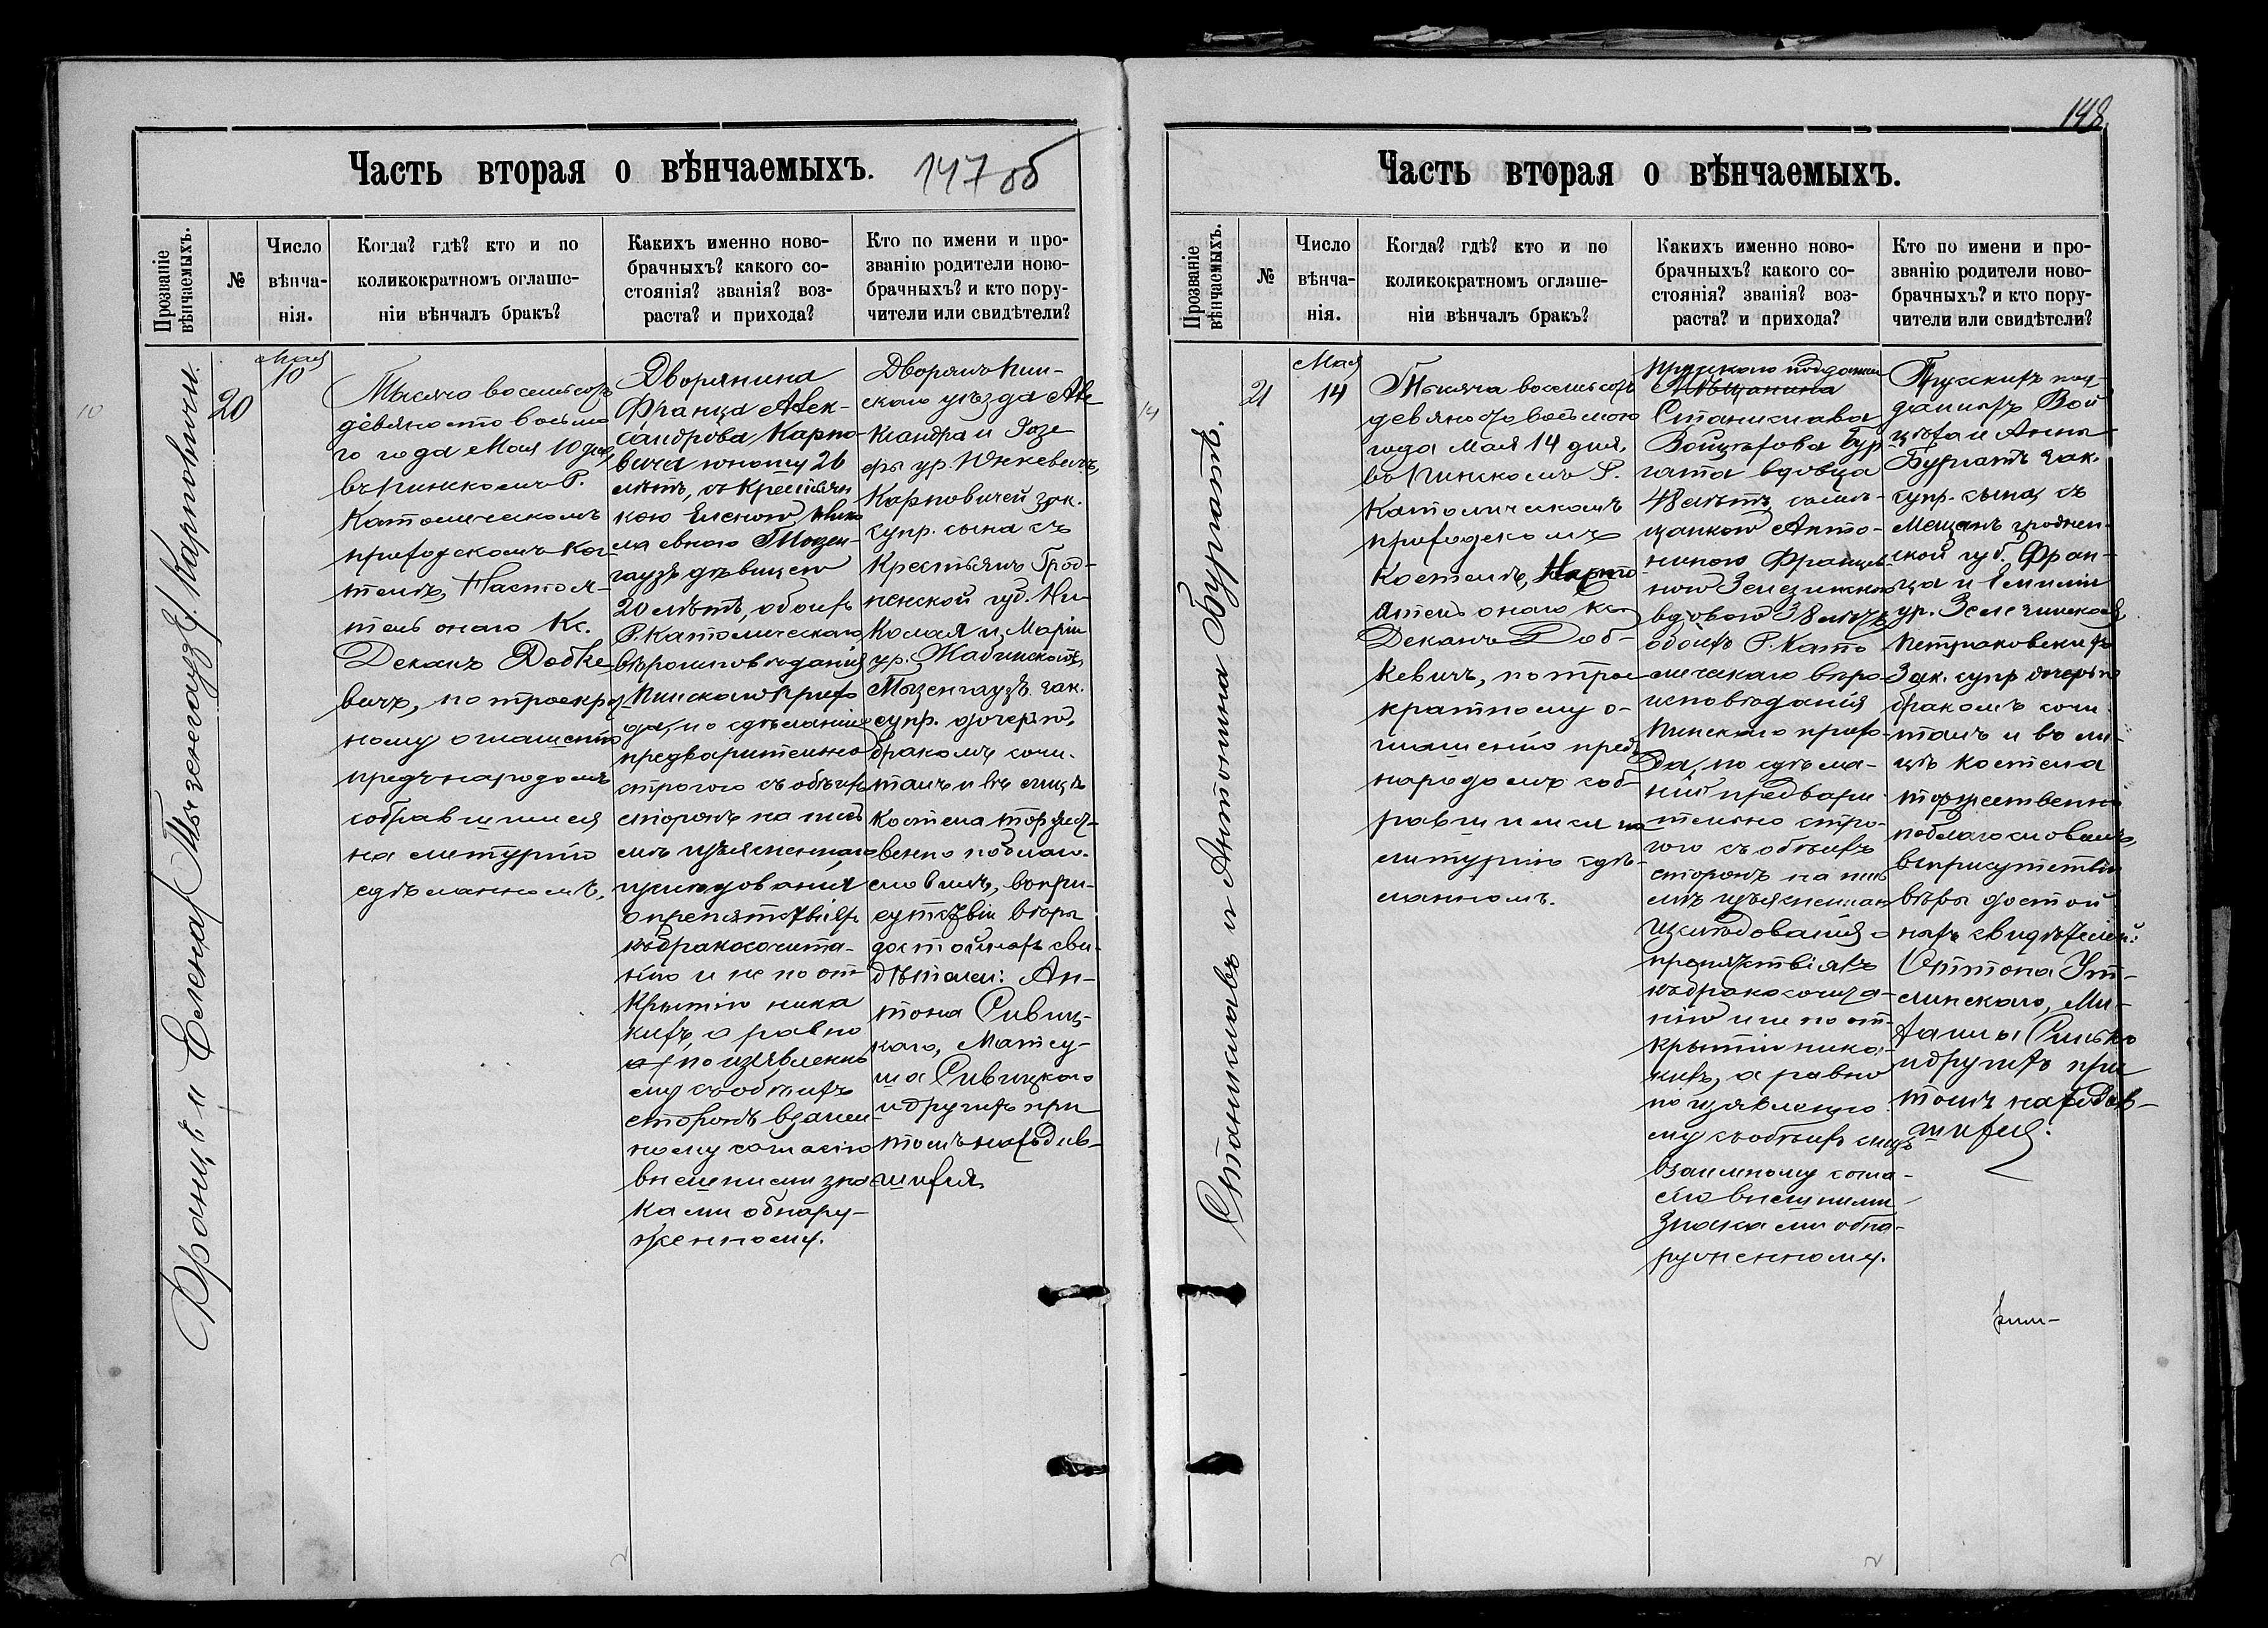 148.
Часть вторая о вѣнчаемыхъ.
147 об
Прозваніе вѣнчаемыхъ.
№
Число вѣнча-
нія.
Когда? гдѣ? кто и по
коликократномъ оглаше-
ніи вѣнчалъ бракъ?
Какихъ именно ново-
брачныхъ? какого со-
стоянія? званія? воз-
раста? и прихода?
Кто по имени и про-
званію родители ново-
брачныхъ? и кто пору-
чители или свидѣтели?
10
Францъ и Елена Тызенгаузъ Карповичи.
20
Мая
10
Тысяча восемьсотъ
девяносто восьма
го года Мая 10 дня,
въ Пинскомъ Р.
Католическомъ
приходскомъ кос
телѣ, Настоя-
тель онаго Кс.
Деканъ Добке
вичъ, по троекрат
ному оглашенію
предъ народомъ
собравшимся
на литургію
сдѣланномъ,
Дворянина
Франца Алек-
сандрова Карпо-
вича юношу 26
лѣтъ, съ крестьян
кою Еленою Нико
лаевною Тызен-
гаузъ дѣвицею
20 лѣтъ, обоихъ
Р. Католическаго
вѣроисповѣданія
Пинскаго прихо
да, по сдѣланіи
предварительно
строгого съ обѣихъ
сторонъ на пись
мѣ изъясненнаго
изслѣдованія
о препятствіяхъ
къ бракосочета-
нію и не по от
крытію ника
кихъ, а равно
по изъявленно
му съ обѣихъ
сторонъ взаим
ному согласію
внешними зна
ками обнару-
женному.
Дворянъ Пин-
скаго уѣзда Але
ксандра и Юзе
фы ур. Юнкевичъ,
Карповичей зак.
супр. сына съ
Крестьянъ Грод-
ненской губ. Ни-
колая и Маріи
ур. Жабинской
Тызенгаузъ зак.
супр. дочерью,
бракомъ соче-
талъ и въ лицѣ
костела торжест-
венно поблаго-
словилъ, въ при-
сутствіи вѣры
достойныхъ сви-
дѣтелей: Ан-
тона Сивиц-
каго, Матеу-
ша Сивицкаго
и другихъ при
томъ находив-
шихся.
Часть вторая о вѣнчаемыхъ.
Прозваніе вѣнчаемыхъ.
№
Число вѣнча-
нія.
Когда? гдѣ? кто и по
коликократномъ оглаше-
ніи вѣнчалъ бракъ?
Какихъ именно ново-
брачныхъ? какого со-
стоянія? званія? воз-
раста? и прихода?
Кто по имени и про-
званію родители ново-
брачныхъ? и кто пору-
чители или свидѣтели?
14
Станиславъ и Антонина Бургатъ.
21
Мая
14
Тысяча восемьсотъ
девяносто восьмого
года Мая 14 дня,
въ Пинскомъ Р.
Католическомъ
приходскомъ
Костелѣ, Насто
ятель онаго Кс.
Деканъ Доб-
кевичъ, по трое
кратному о-
глашенію предъ
народомъ соб-
равшимся на
литургію сдѣ-
ланномъ.
Прускаго подданнаго
Мѣщанина
Станислава
Войцѣхова Бур
гата вдовца
48 лѣтъ, съ мѣ-
щанкою Анто-
ниною Францев-
ною Зелезинскою
вдовою 38 лѣтъ,
обоихъ Р. Като
лическаго вѣро
исповѣданія
Пинскаго прихо-
да, по сдѣла-
ніи предвари-
тельно стро-
гого съ обѣихъ
сторонъ на пись
мѣ изъясненнаго
изслѣдованія о
препятствіяхъ
къ бракосочета-
нію и не по от-
крытіи ника-
кихъ, а равно
по изъявленно
му съ обѣихъ лицъ
взаимному согла-
сію внешними
знаками обна-
руженному.
Прускихъ под-
данныхъ Вой
цѣха и Анны
Бургатъ зак.
супр. сына, съ
Мещанъ гроднен-
ской губ. Фран-
ца и Емиліи
ур. Зелезинской,
Петраковскихъ
Зак. супр дочерью
бракомъ соче-
талъ и въ ли-
цѣ костела
торжественно
поблагословилъ,
въ присутствіи
вѣры достой
ныхъ свидѣтелей:
и другихъ при
томъ находив-
шихся.